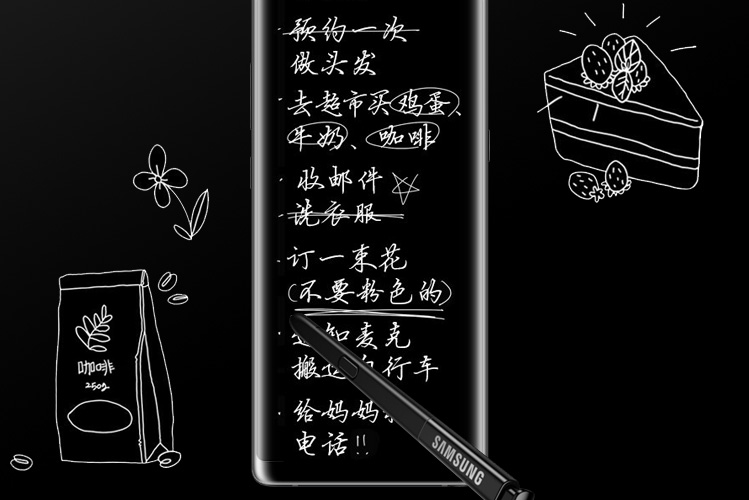 · 预约一次
做头发
· 去超市买鸡蛋、
牛奶、咖啡
· 收邮件
· 洗衣服
· 订一束花
(不要粉色的)
· 知麦克
搬 自行车
· 给妈妈
电话!!
咖啡
250g
SAMSUNG